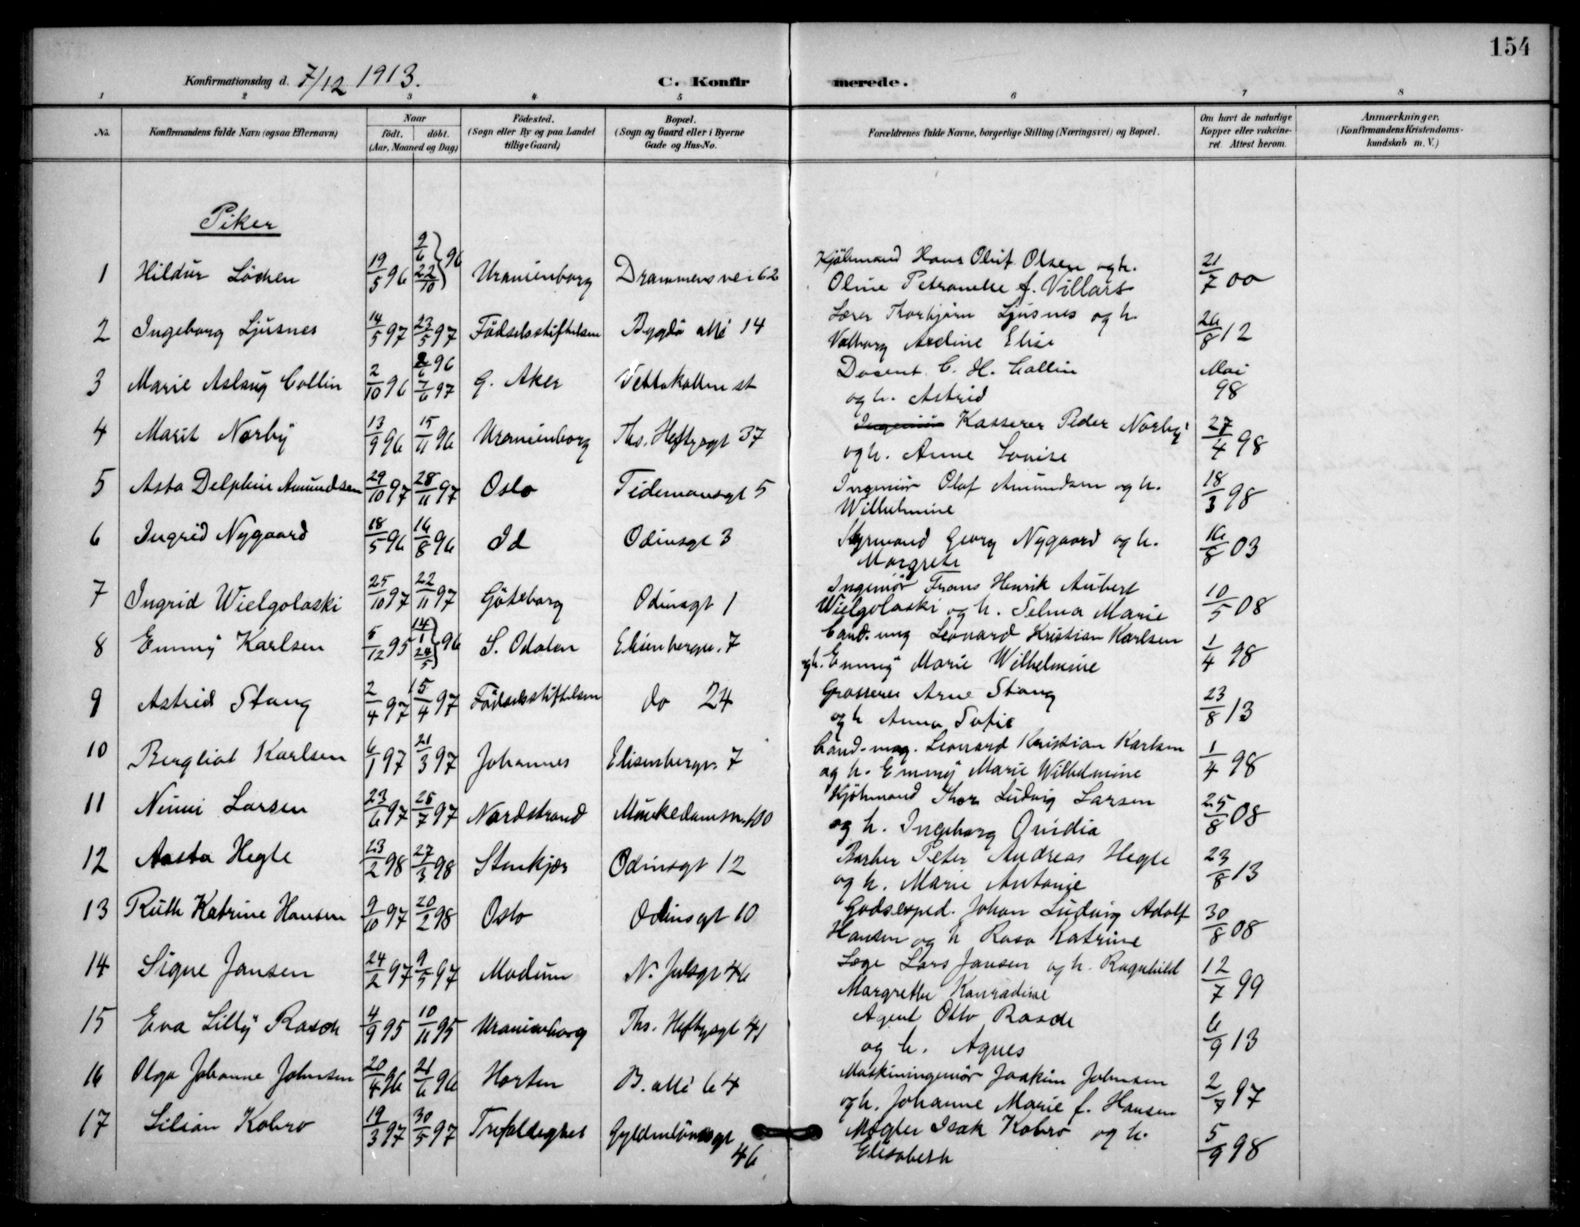 154
Konfirmationsdag d. 7/12 1913.
C. Konfirmerede.
1 2 3 4 5 6 7 8
No.
Konfirmandens fulde Navn (ogsaa Efternavn)
Naar
født. døbt.
(Aar, Maaned og Dag)
Fødested.
(Sogn eller By og paa Landet
tillige Gaard)
Bopæl.
(Sogn og Gaard eller i Byerne
Gade og Hus-No.
Forældrenes fulde Navne, borgerlige Stilling (Næringsvei) og Bopæl.
Om havt de naturlige
Kopper eller vakcine-
ret. Attest herom.
Anmærkninger.
(Konfirmandens Kristendoms-
kundskab m. V.)
Piker
1 Hildur Löchen 19/5 96 9/6 22/10 } 96 Uranienborg Drammensvei 62 Kjøbmand Hans Oluf Olsen og h. 21/7 00
Oline Petronelle f. Villars
2 Ingeborg Ljusnes 14/5 97 23/5 97 Födselsstiftelsen Bygdö allé 14 Lærer Thorbjørn Ljusnes og h. 26/8 12
Valborg Andine Elise
3 Marie Aslaug Collin 2/10 96 7/6 97 G. Aker Vettakollen st Dosent C. H. Collin Mai 98
og h. Astrid
4 Marit Norby 13/9 96 15/11 96 Uranienborg Ths. Heftyesgt 37 Ingeniör Kasserer Peder Norby 27/4 98
og h. Anne Lovise
5 Asta Delphin Amundsen 29/10 97 28/11 97 Oslo Tidemansgt 5 Ingeniör Olaf Amundsen og h. 18/3 98
Wilhelmine
6 Ingrid Nygaard 18/5 96 16/8 96 Id Odinsgt 3 Styrmand Georg Nygaard og h. 16/8 03
Margrete
7 Ingrid Wielgolaski 25/10 97 22/11 97 Göteborg Odinsgt 1 Ingeniör Frans Henrik Aubert 10/5 08
Wielgolaski og h. Selma Marie
8 Emmy Karlsen 5/12 95 14/1 24/5 } 96 S. Odalen Elisenbergv. 7 Cand. mag Leonard Kristian Karlsen 1/4 98
og h. Emmy Marie Wilhelmine
9 Astrid Stang 2/4 97 15/4 97 Födselsstiftelsen do 24 Grosserer Arne Stang 23/8 13
og h Anna Sofie
10 Bergliot Karlsen 6/1 97 21/3 97 Johannes Elisenbergv. 7 Cand. mag. Leonard Kristian Karlsen 1/4 98
og h. Emmy Marie Wilhelmine
11 Ninni Larsen 23/6 97 25/7 97 Nordstrand Munkedamsv. 100 Kjöbmand Thor Ludvig Larsen 25/8 08
og h. Ingeborg Ovidia
12 Aasta Hegle 23/2 98 27/3 98 Stenkjær Odinsgt 12 Barber Peter Andreas Hegle 23/8 13
og h. Marie Antonie
13 Ruth Katrine Hansen 9/10 97 20/2 98 Oslo Odinsgt 10 Godsexped. Johan Ludvig Adolf 30/8 08
Hansen og h Rosa Katrine
14 Signe Jansen 24/2 97 9/5 97 Modum N. Julsgt 46 Læge Lars Jansen og h. Ragnhild 12/7 99
Margrethe Konradine
15 Eva Lilly Rasch 4/9 95 10/11 95 Uranienborg Ths. Heftyesgt 41 Agent Otto Rasch 6/9 13
og h. Agnes
16 Olga Johanne Johnsen 20/4 96 21/6 96 Horten B. allé 64 Maskiningeniör Joakim Johnsen 2/7 97
og h. Johanne Marie f. Hansen
17 Lilian Kobro 19/3 97 30/5 97 Trefoldighet Gyldenlövesgt 46 Mægler Isak Kobro og h. 5/9 98
Elisabeth